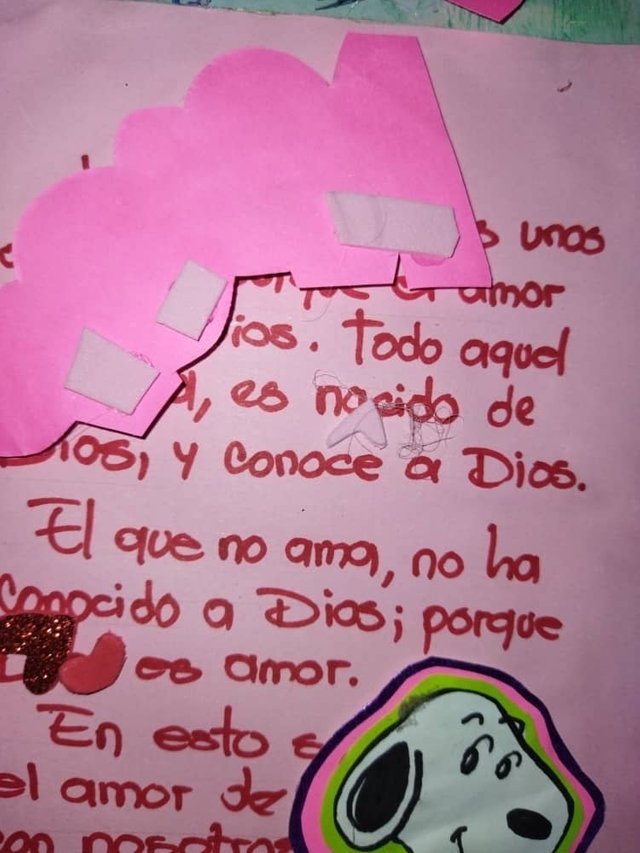 unos
amor
ios. Todo aquel
, es nacido de
Dios, y conoce a Dios.
El que no ama, no ha
conocido a Dios; porque
es amor.
En esto
el amor de
con nosotros